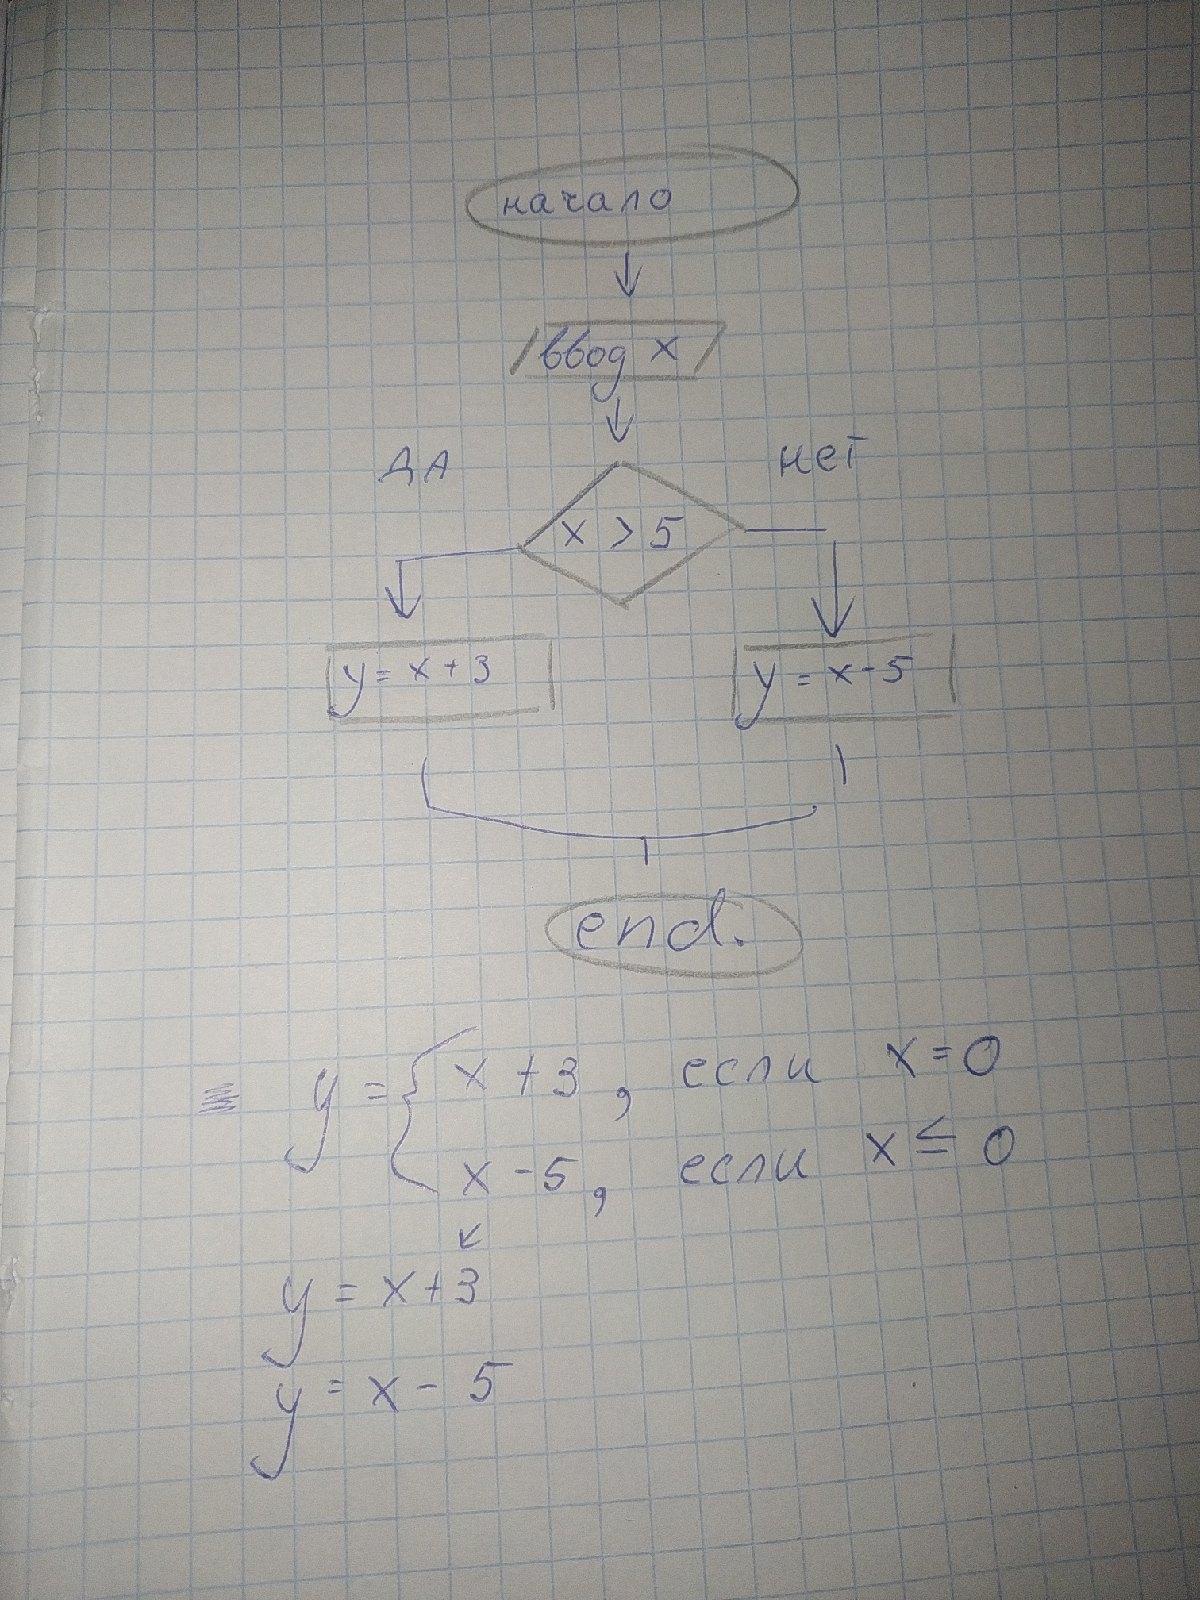 начало
ввод x
ДА
нет
x > 5
y = x + 3
y = x - 5
end.
y = { x + 3, если x = 0
x - 5, если x ≤ 0
y = x + 3
y = x - 5